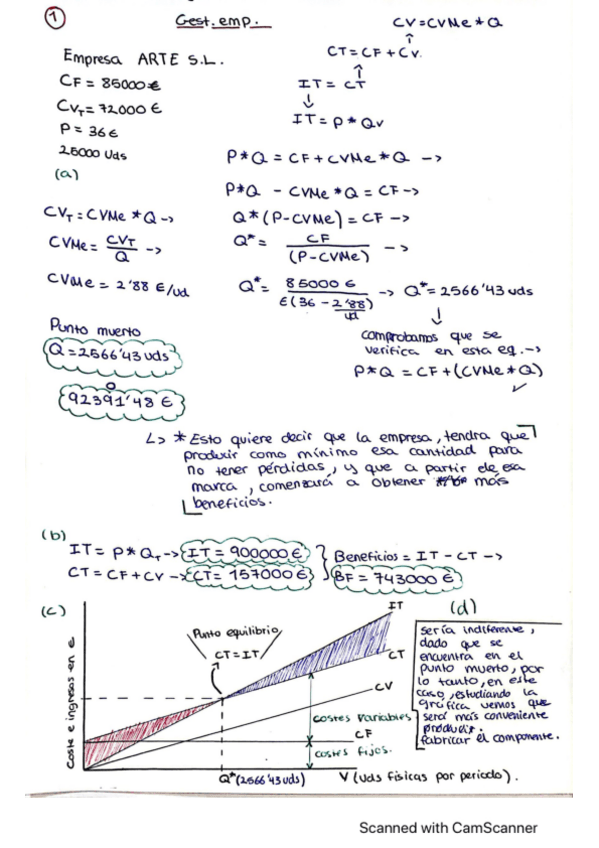 1
Gest. emp.
CV=CVMe*Q
CT=CF+CV.
IT= CT
IT=P*QV
Empresa ARTE S.L.
CF= 85000€
CVT=72000 €
P= 36€
25000 Uds
(a)
P*Q = CF+CVMe*Q ->
P*Q - CVMe*Q = CF ->
CVT=CVMe*Q ->
Q*(P-CVMe)=CF ->
CVMe= CVT/Q ->
Q*= CF/(P-CVMe) ->
CVMe = 2'88 €/ud
Q*= 85000 €/€(36-2'88)/ud -> Q*=2566'43 uds
Punto muerto
Q=2566'43 uds
o
92391'48 €
comprobamos que se
verifica en esta eq. ->
P*Q = CF+(CVMe*Q)
✓
↳ * Esto quiere decir que la empresa, tendra que
producir como mínimo esa cantidad para
no tener pérdidas, y que a partir de esa
marca, comenzará a obtener más
beneficios.
(b)
IT= P*QT -> IT = 900000 €
CT=CF+CV -> CT= 157000 €
Beneficios = IT-CT ->
BF = 743000 €
(c)
Coste e ingresos en €
Punto equilibrio
CT=IT
IT
CT
CV
costes variables
CF
costes fijos.
Q*(2566'43 uds)
V (Uds físicas por periodo).
(d)
sería indiferente,
dado que se
encuentra en el
punto muerto, por
lo tanto, en este
caso, estudiando la
gráfica vemos que
será más conveniente
producir.
fabricar el componente.
Scanned with CamScanner